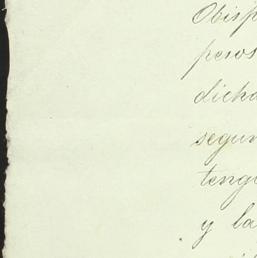 Obisp
pesos
dicha
segun
teng
y la